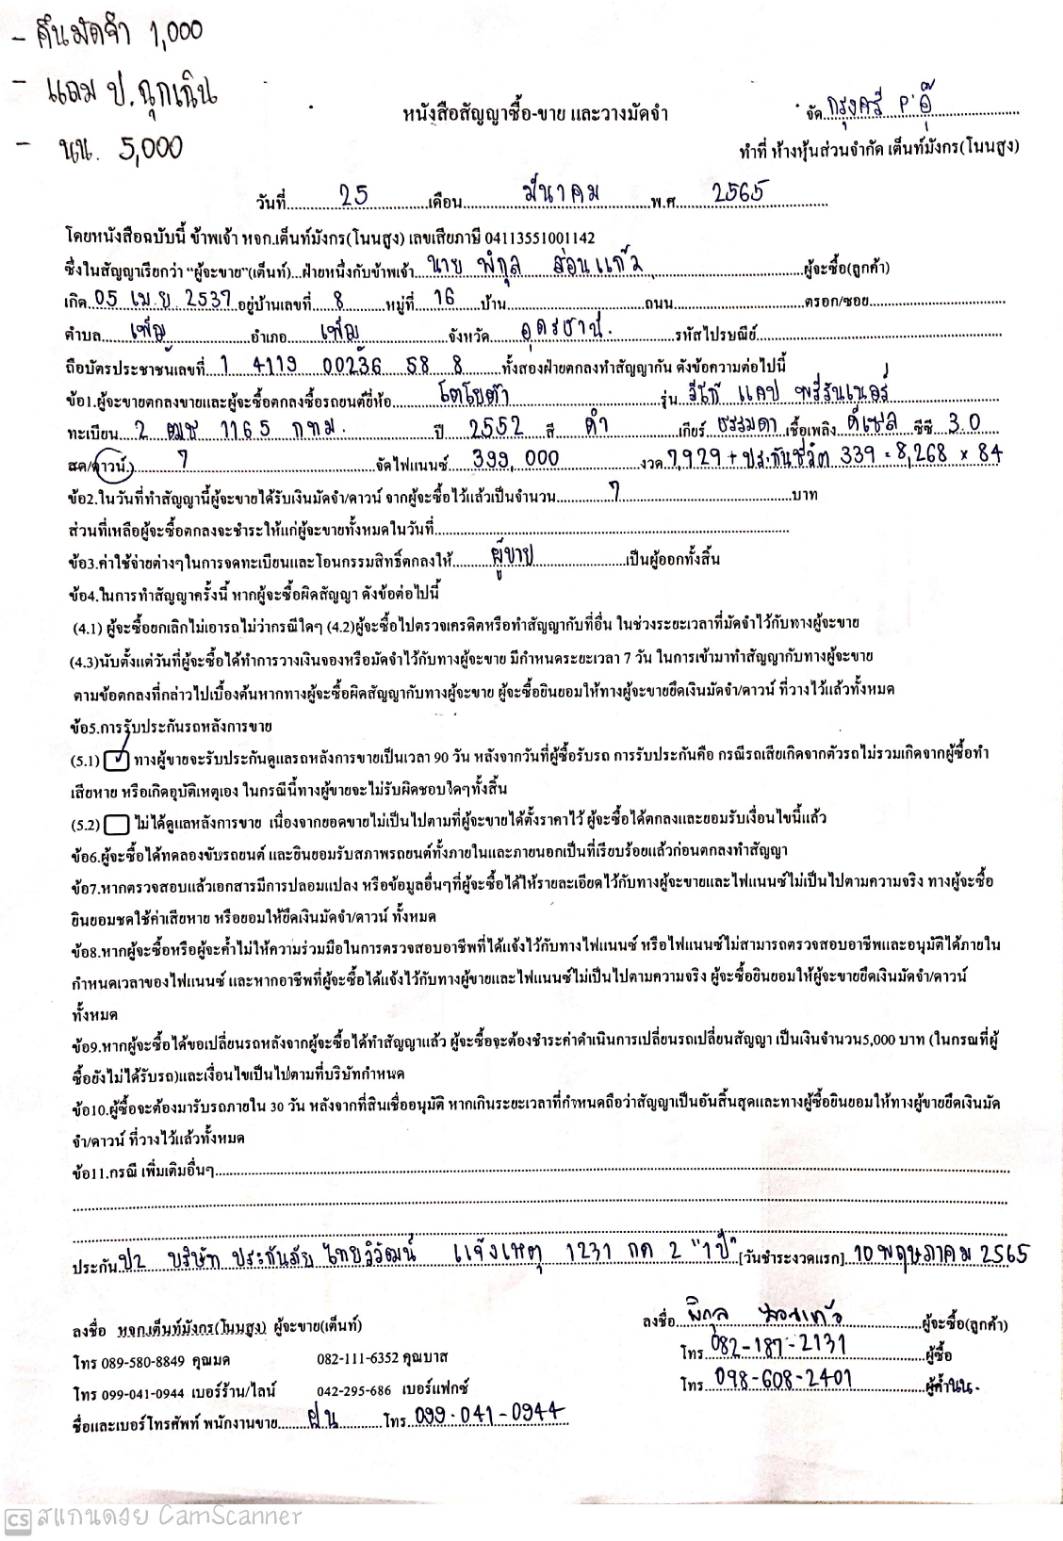 - คืนมัดจำ 1,000
- แถม ป.ฉุกเฉิน
- นน. 5,000
หนังสือสัญญาซื้อ-ขาย และวางมัดจำ
จัด กรุงศรี P'อุ๊
ทำที่ ห้างหุ้นส่วนจำกัด เต็นท์มังกร(โนนสูง)
วันที่ 25 เดือน มีนาคม พ.ศ 2565
โดยหนังสือฉบับนี้ ข้าพเจ้า หจก.เต็นท์มังกร(โนนสูง) เลขเสียภาษี 04113551001142
ซึ่งในสัญญาเรียกว่า "ผู้จะขาย"(เต็นท์)...ฝ่ายหนึ่งกับข้าพเจ้า นาย พิกุล อ่อนแก้ว ผู้จะซื้อ(ลูกค้า)
เกิด 05 เม.ย 2537 อยู่บ้านเลขที่ 8 หมู่ที่ 16 บ้าน ถนน ตรอก/ซอย
ตำบล เพ็ญ อำเภอ เพ็ญ จังหวัด อุดรธานี. รหัสไปรษณีย์
ถือบัตรประชาชนเลขที่ 1 4119 00236 58 8 ทั้งสองฝ่ายตกลงทำสัญญากัน ดังข้อความต่อไปนี้
ข้อ1.ผู้จะขายตกลงขายและผู้จะซื้อตกลงซื้อรถยนต์ยี่ห้อ โตโยต้า รุ่น วีโก้ แคป พรีรันเนอร์
ทะเบียน 2 ฒช 1165 กทม. ปี 2552 สี ดำ เกียร์ ธรรมดา เชื้อเพลิง ดีเซล ซีซี 3.0
สด/ดาวน์ 7 จัดไฟแนนซ์ 399,000 งวด 7,929 + ประกันชีวิต 339 = 8,268 × 84
ข้อ2.ในวันที่ทำสัญญานี้ผู้จะขายได้รับเงินมัดจำ/ดาวน์ จากผู้จะซื้อไว้แล้วเป็นจำนวน 7 บาท
ส่วนที่เหลือผู้จะซื้อตกลงจะชำระให้แก่ผู้จะขายทั้งหมดในวันที่
ข้อ3.ค่าใช้จ่ายต่างๆในการจดทะเบียนและโอนกรรมสิทธิ์ตกลงให้ ผู้ขาย เป็นผู้ออกทั้งสิ้น
ข้อ4.ในการทำสัญญาครั้งนี้ หากผู้จะซื้อผิดสัญญา ดังข้อต่อไปนี้
(4.1) ผู้จะซื้อยกเลิกไม่เอารถไม่ว่ากรณีใดๆ (4.2)ผู้จะซื้อไปตรวจเครดิตหรือทำสัญญากับที่อื่น ในช่วงระยะเวลาที่มัดจำไว้กับทางผู้จะขาย
(4.3)นับตั้งแต่วันที่ผู้จะซื้อได้ทำการวางเงินจองหรือมัดจำไว้กับทางผู้จะขาย มีกำหนดระยะเวลา 7 วัน ในการเข้ามาทำสัญญากับทางผู้จะขาย
ตามข้อตกลงที่กล่าวไปเบื้องต้นหากทางผู้จะซื้อผิดสัญญากับทางผู้จะขาย ผู้จะซื้อยินยอมให้ทางผู้จะขายยึดเงินมัดจำ/ดาวน์ ที่วางไว้แล้วทั้งหมด
ข้อ5.การรับประกันรถหลังการขาย
(5.1) ทางผู้ขายจะรับประกันดูแลรถหลังการขายเป็นเวลา 90 วัน หลังจากวันที่ผู้ซื้อรับรถ การรับประกันคือ กรณีรถเสียเกิดจากตัวรถไม่รวมเกิดจากผู้ซื้อทำ
เสียหาย หรือเกิดอุบัติเหตุเอง ในกรณีนี้ทางผู้ขายจะไม่รับผิดชอบใดๆทั้งสิ้น
(5.2) ไม่ได้ดูแลหลังการขาย เนื่องจากยอดขายไม่เป็นไปตามที่ผู้จะขายได้ตั้งราคาไว้ ผู้จะซื้อได้ตกลงและยอมรับเงื่อนไขนี้แล้ว
ข้อ6.ผู้จะซื้อได้ทดลองขับรถยนต์ และยินยอมรับสภาพรถยนต์ทั้งภายในและภายนอกเป็นที่เรียบร้อยแล้วก่อนตกลงทำสัญญา
ข้อ7.หากตรวจสอบแล้วเอกสารมีการปลอมแปลง หรือข้อมูลอื่นๆที่ผู้จะซื้อได้ให้รายละเอียดไว้กับทางผู้จะขายและไฟแนนซ์ไม่เป็นไปตามความจริง ทางผู้จะซื้อ
ยินยอมชดใช้ค่าเสียหาย หรือยอมให้ยึดเงินมัดจำ/ดาวน์ ทั้งหมด
ข้อ8.หากผู้จะซื้อหรือผู้จะค้ำไม่ให้ความร่วมมือในการตรวจสอบอาชีพที่ได้แจ้งไว้กับทางไฟแนนซ์ หรือไฟแนนซ์ไม่สามารถตรวจสอบอาชีพและอนุมัติได้ภายใน
กำหนดเวลาของไฟแนนซ์ และหากอาชีพที่ผู้จะซื้อได้แจ้งไว้กับทางผู้ขายและไฟแนนซ์ไม่เป็นไปตามความจริง ผู้จะซื้อยินยอมให้ผู้จะขายยึดเงินมัดจำ/ดาวน์
ทั้งหมด
ข้อ9.หากผู้จะซื้อได้ขอเปลี่ยนรถหลังจากผู้จะซื้อได้ทำสัญญาแล้ว ผู้จะซื้อจะต้องชำระค่าดำเนินการเปลี่ยนรถเปลี่ยนสัญญา เป็นเงินจำนวน5,000 บาท (ในกรณที่ผู้
ซื้อยังไม่ได้รับรถ)และเงื่อนไขเป็นไปตามที่บริษัทกำหนด
ข้อ10.ผู้ซื้อจะต้องมารับรถภายใน 30 วัน หลังจากที่สินเชื่ออนุมัติ หากเกินระยะเวลาที่กำหนดถือว่าสัญญาเป็นอันสิ้นสุดและทางผู้ซื้อยินยอมให้ทางผู้ขายยึดเงินมัด
จำ/ดาวน์ ที่วางไว้แล้วทั้งหมด
ข้อ11.กรณี เพิ่มเติมอื่นๆ
ประกัน ป2 บริษัท ประกันภัย ไทยวิวัฒน์ แจ้งเหตุ 1231 กด 2 "1ปี" [วันชำระงวดแรก] 10 พฤษภาคม 2565
ลงชื่อ หจก.เต็นท์มังกร(โนนสูง) ผู้จะขาย(เต็นท์)
ลงชื่อ พิกุล อ่อนแก้ว ผู้จะซื้อ(ลูกค้า)
โทร 089-580-8849 คุณมด 082-111-6352 คุณบาส
โทร 082-187-2131 ผู้ซื้อ
โทร 099-041-0944 เบอร์ร้าน/ไลน์ 042-295-686 เบอร์แฟกซ์
โทร 098-608-2401 ผู้ค้ำนน.
ชื่อและเบอร์โทรศัพท์ พนักงานขาย ฝน โทร 099-041-0944
CS สแกนด้วย CamScanner